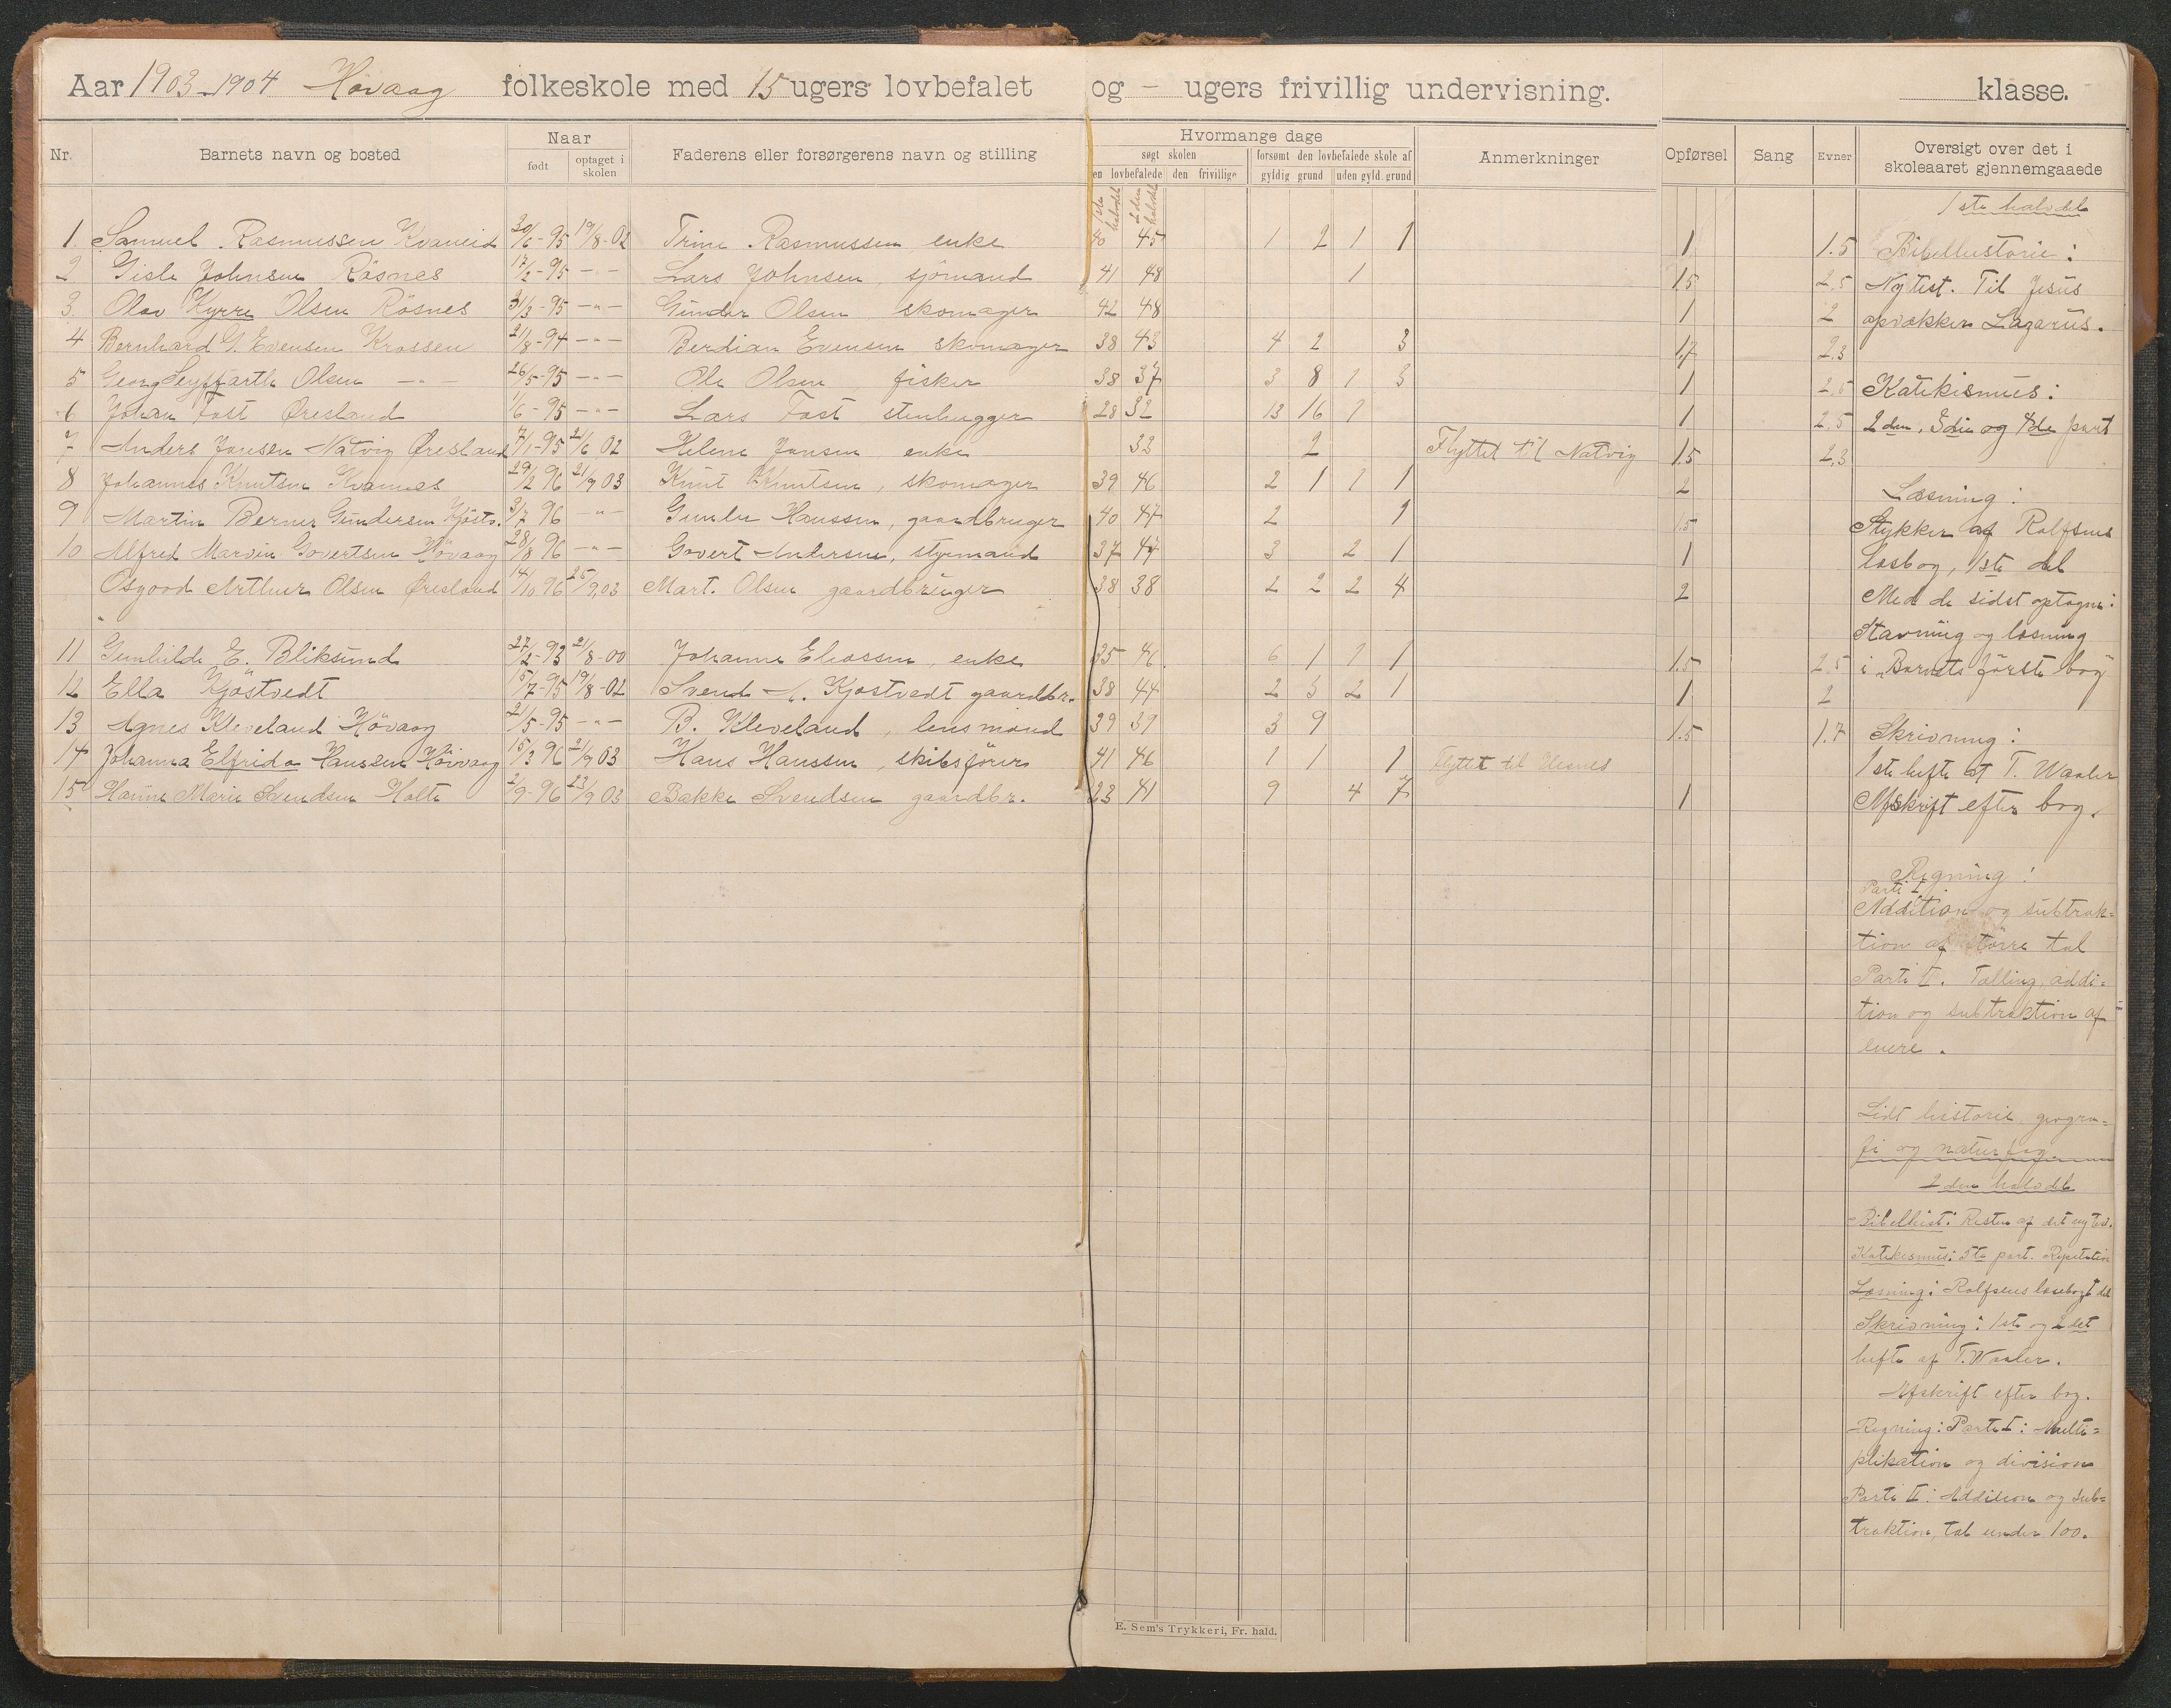 Aar 1903-1904 Høvaag folkeskole med 15 ugers lovbefalet og - ugers frivillig undervisning. klasse.
Nr. Barnets navn og bosted Naar født optaget i skolen Faderens eller forsørgerens navn og stilling Hvormange dage søgt skolen den lovbefalede den frivillige forsømt den lovbefalede skole af gyldig grund uden gyld. grund Anmerkninger Opførsel Sang Evner Oversigt over det i skoleaaret gjennemgaaede
1ste halvdel 2den halvdel
1 Samuel Rasmussen Kvaneid 20/6-95 19/8-02 Trine Rasmussen enke 40 45 1 2 1 1 1 1.5
2 Gisle Johnsen Røsnes 17/2-95 -"- Lars Johnsen, sjømand 41 48 1 1.5 2.5
3. Olav Kyrre Olsen Røsnes 31/3-95 -"- Gunder Olsen, skomager 42 48 1 2
4 Bernhard G. Evensen Krossen 21/8-94 -"- Berdian Evensen skomager 38 43 4 2 3 1.7 2.3
5 Georg Seyffarth Olsen -"- 26/5-95 -"- Ole Olsen, fisker 38 37 3 8 1 3 1 2.5
6 Johan Fast Øresland 1/6-95 -"- Lars Fast stenhugger 28 32 13 16 1 1 2.5
7 Anders Jansen Natvig Øresland 7/1-95 21/6 02 Helene Jansen enke 33 2 Flyttet til Natvig 1.5 2.3
8 Johannes Knutsen Kvannes 29/2 96 21/9 03 Knut Knutsen, skomager 39 46 2 1 1 1 2
9 Martin Berner Gundersen Kjøstv. 3/7 96 -"- Gunder Hanssen, gaardbruger 40 47 2 1 1.5
10 Alfred Marvin Govertsen Høvaag 28/8 96 -"- Govert Andersen, styrmand 37 47 3 2 1 1
Osgood Arthur Olsen Øresland 14/10 96 25/9.03 Mart. Olsen gaardbruger 38 38 2 2 2 4 2
11 Gunhilde E. Bliksund 27/2-93 21/8-00 Johanne Eliassen, enke 35 46 6 1 1 1 1.5 2.5
12 Ella Kjøstvedt 15/7-95 19/8-02 Svend A. Kjøstvedt gaardbr. 38 44 2 3 2 1 1 2
13 Agnes Kleveland Høvaag 21/5-95 -"- B. Kleveland, lensmand 39 39 3 9 1.5 1.7
14 Johanna Elfrida Hansen Høvaag 15/3 96 21/9 03 Hans Hanssen, skibsfører 41 46 1 1 1 Flyttet til Ulesnes
15 Hanne Marie Svendsen Holte 2/9-96 23/9 03 Bakke Svendsen gaardbr. 23 41 9 4 7 1
1ste halvdel
Bibelhistorie:
Nytest. Til Jesus
opvækker Lazarus.
Katekismus:
2den, 3die og 4de part
Læsning:
Stykker af Rolfsens
læsbog, 1ste del
Med de sidst optagne:
Stavning og læsning
i "Barnets første bog"
Skrivning:
1ste hefte af T. Waaler
Afskrift efter bog.
Regning:
Parti I.
Addition og subtrak=
tion af større tal
Parti II. Tælling, addi=
tion og subtraktion af
enere.
Lidt historie, geogra=
fi og naturfag.
2den halvdel
Bibelhist: Resten af det ny test.
Katekismus: 5te part. Repetition
Læsning: Rolfsens læsebog 1 del
Skrivning: 1ste og 2det
hefte af T. Waaler.
Afskrift efter bog.
Regning: Parti I: Multi=
plikation og division
Parti II: Addition og sub=
traktion, tal under 100.
E. Sem's Trykkeri, Fr. hald.